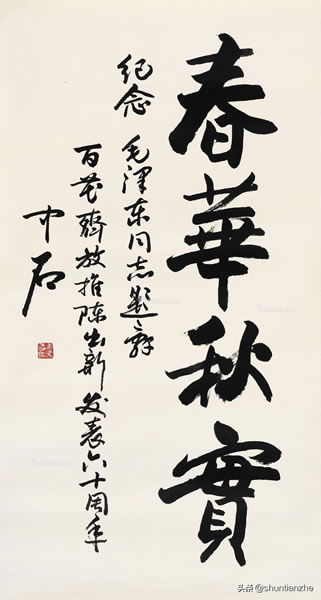 春華秋實
纪念
毛泽东同志题辞
百花齊放推陈出新发表六十周年
中石
头条 @shuntianzhe